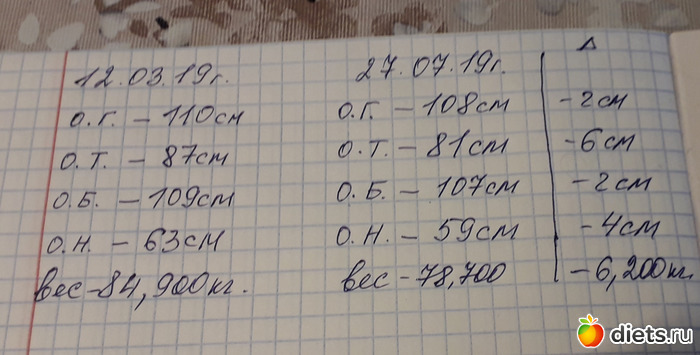 12.03.19г. 27.07.19г. Δ
о.г. – 110см о.г. – 108см –2см
о.т. – 87см о.т. – 81см –6см
о.б. – 109см о.б. – 107см –2см
о.н. – 63см о.н. – 59см –4см
вес –84,900кг. вес –78,700 –6,200кг.
diets.ru